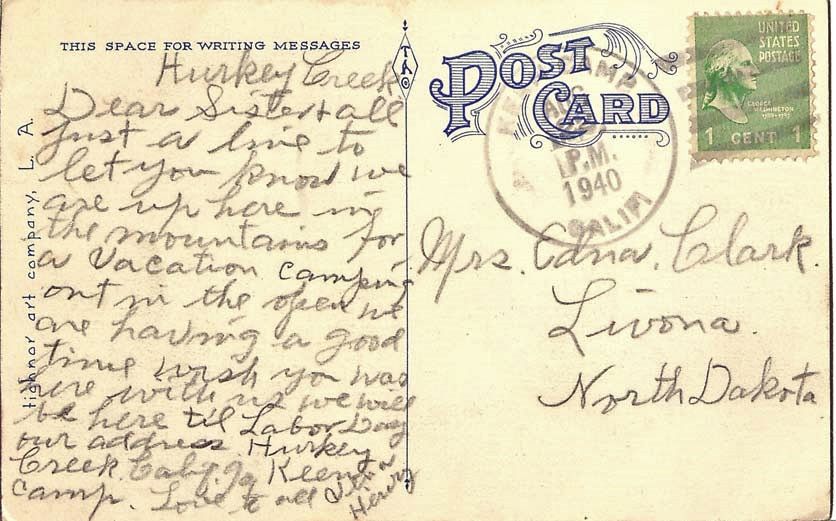 THIS SPACE FOR WRITING MESSAGES
Hurkey Creek
Dear Sister + all
Just a line to
let you know we
are up here in
the mountains for
a vacation camping
out in the open we
are having a good
time wish you was
here with us we will
be here til Labor Day
our address Hurkey
Creek. Calif. Keen
Camp. Love to all
Henry
tichnor art company, L. A.
POST
CARD
CAMP
AUG
P.M.
1940
CALIF
UNITED
STATES
POSTAGE
GEORGE
WASHINGTON
1 CENT 1
Mrs. Edna Clark.
Livona.
North Dakota